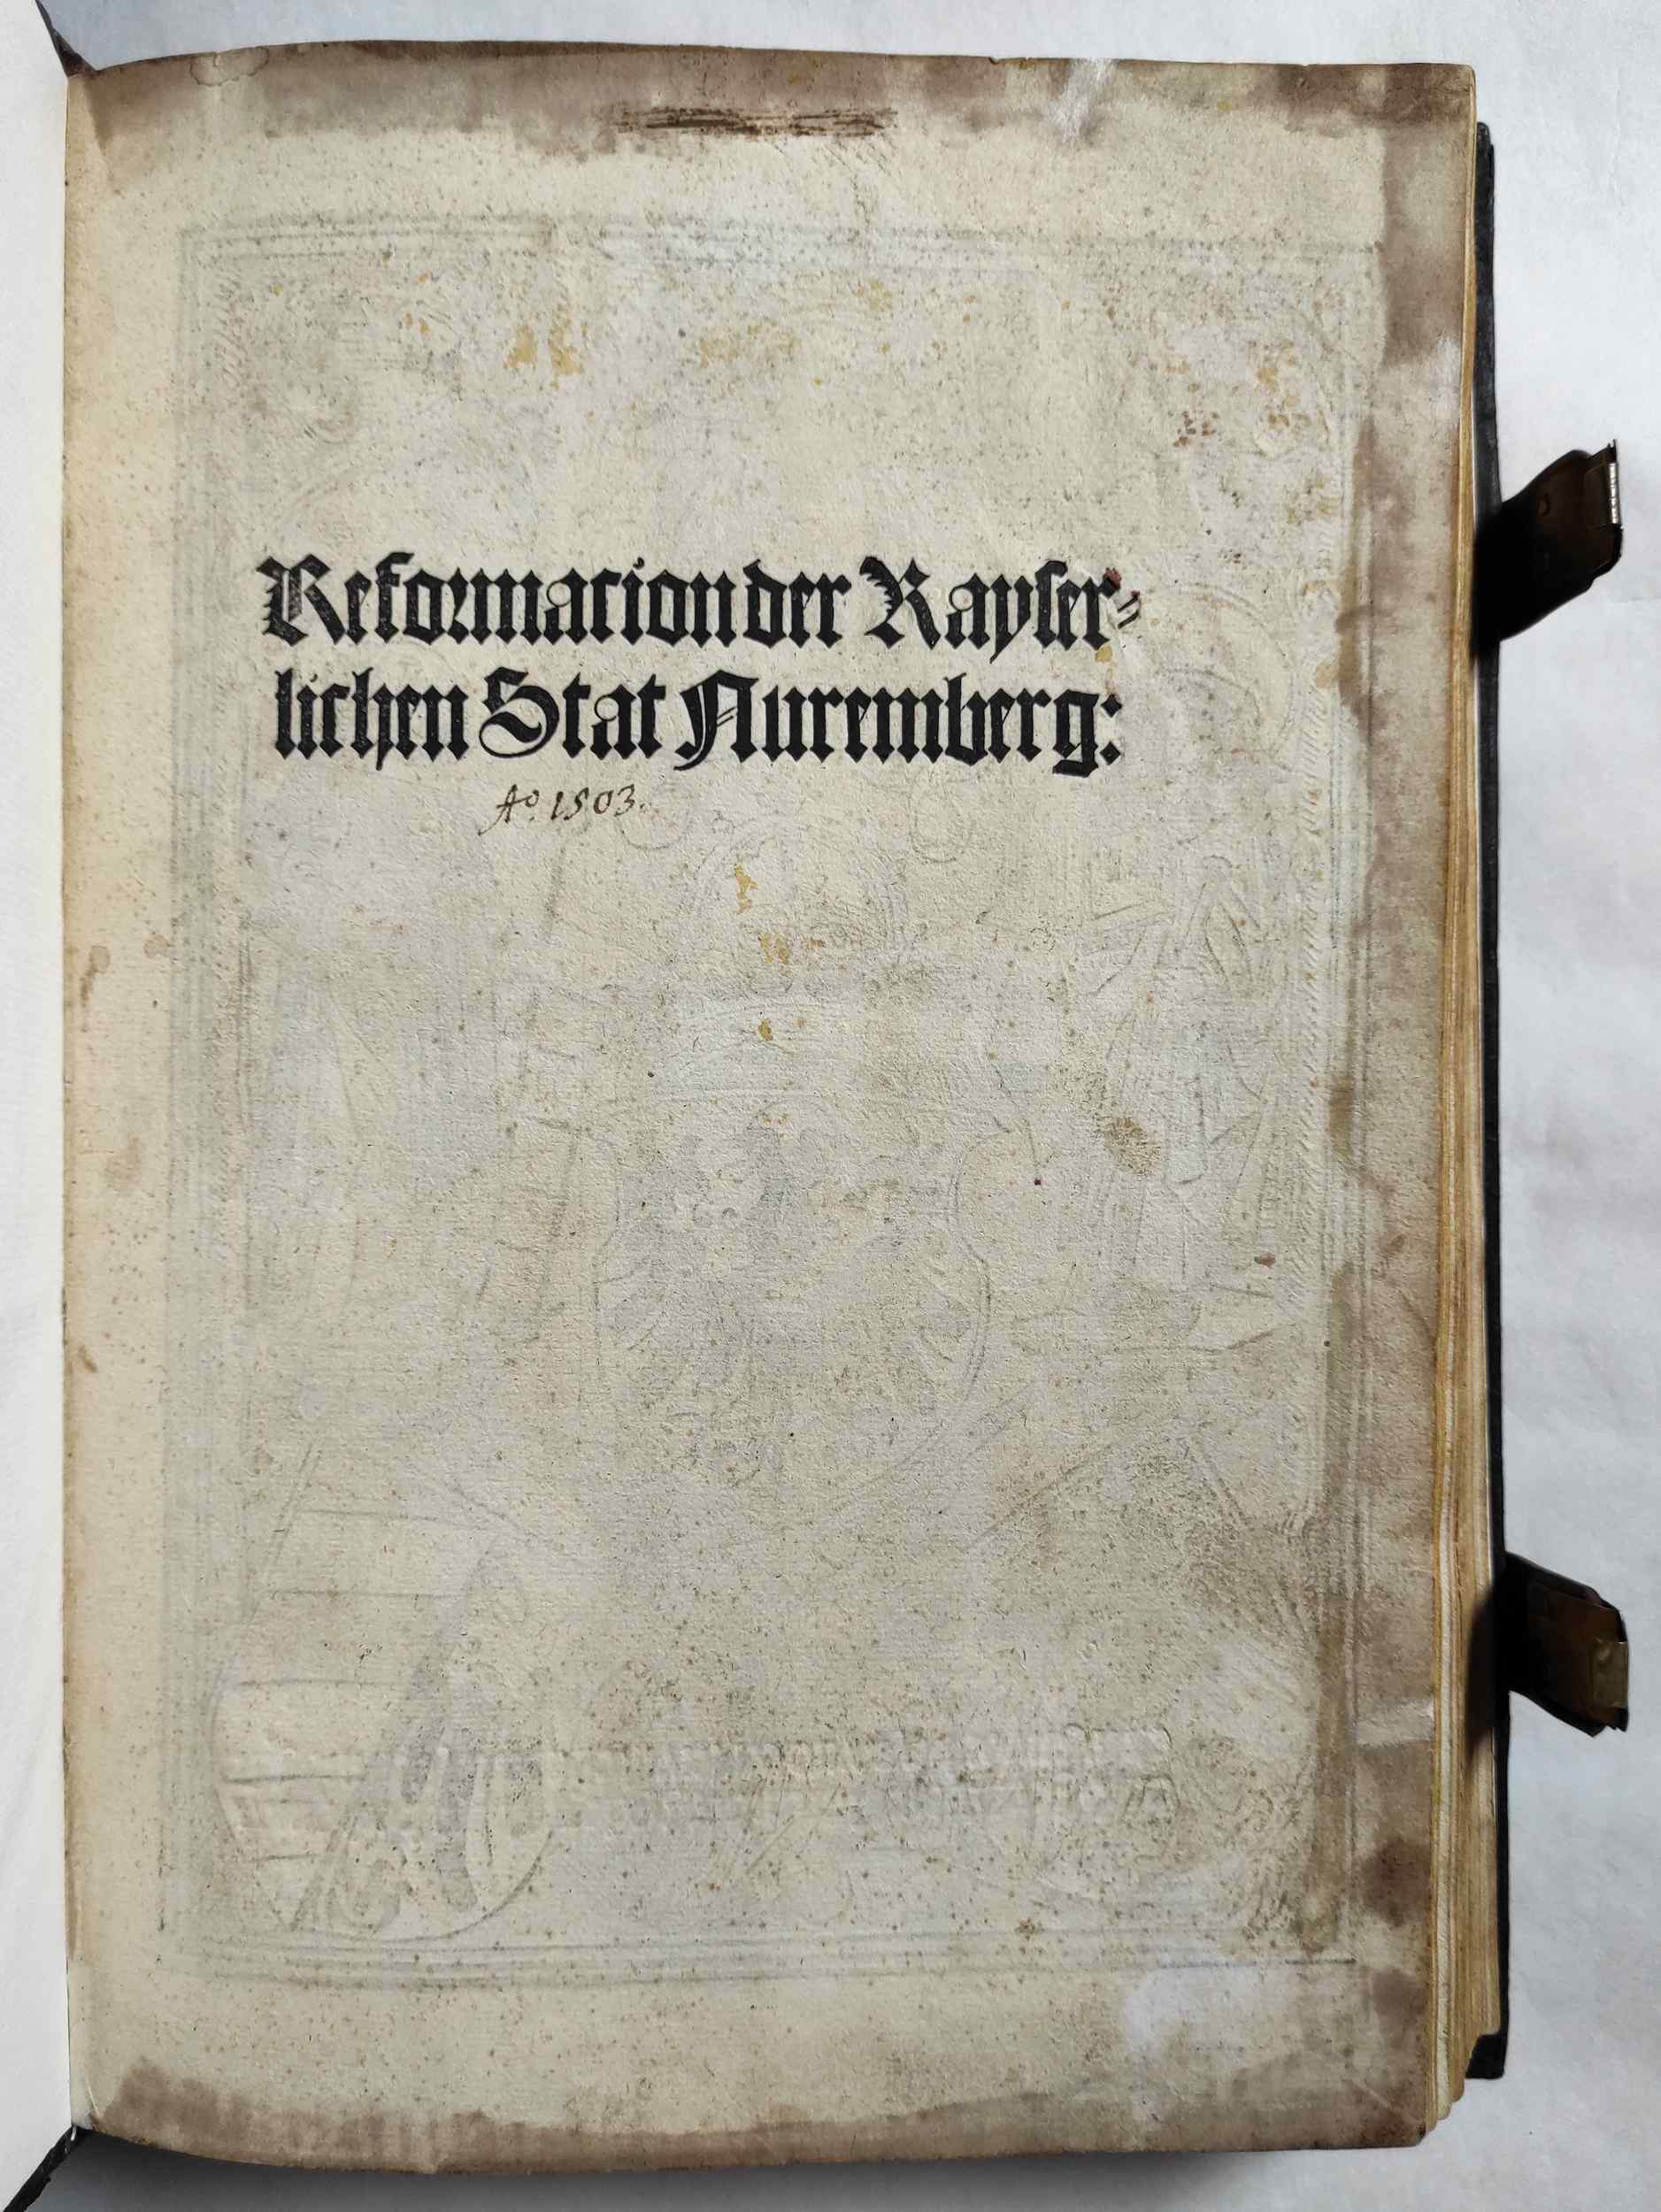 Reformacion der Kayser⸗
lichen Stat Nuremberg:
Aº. 1503.